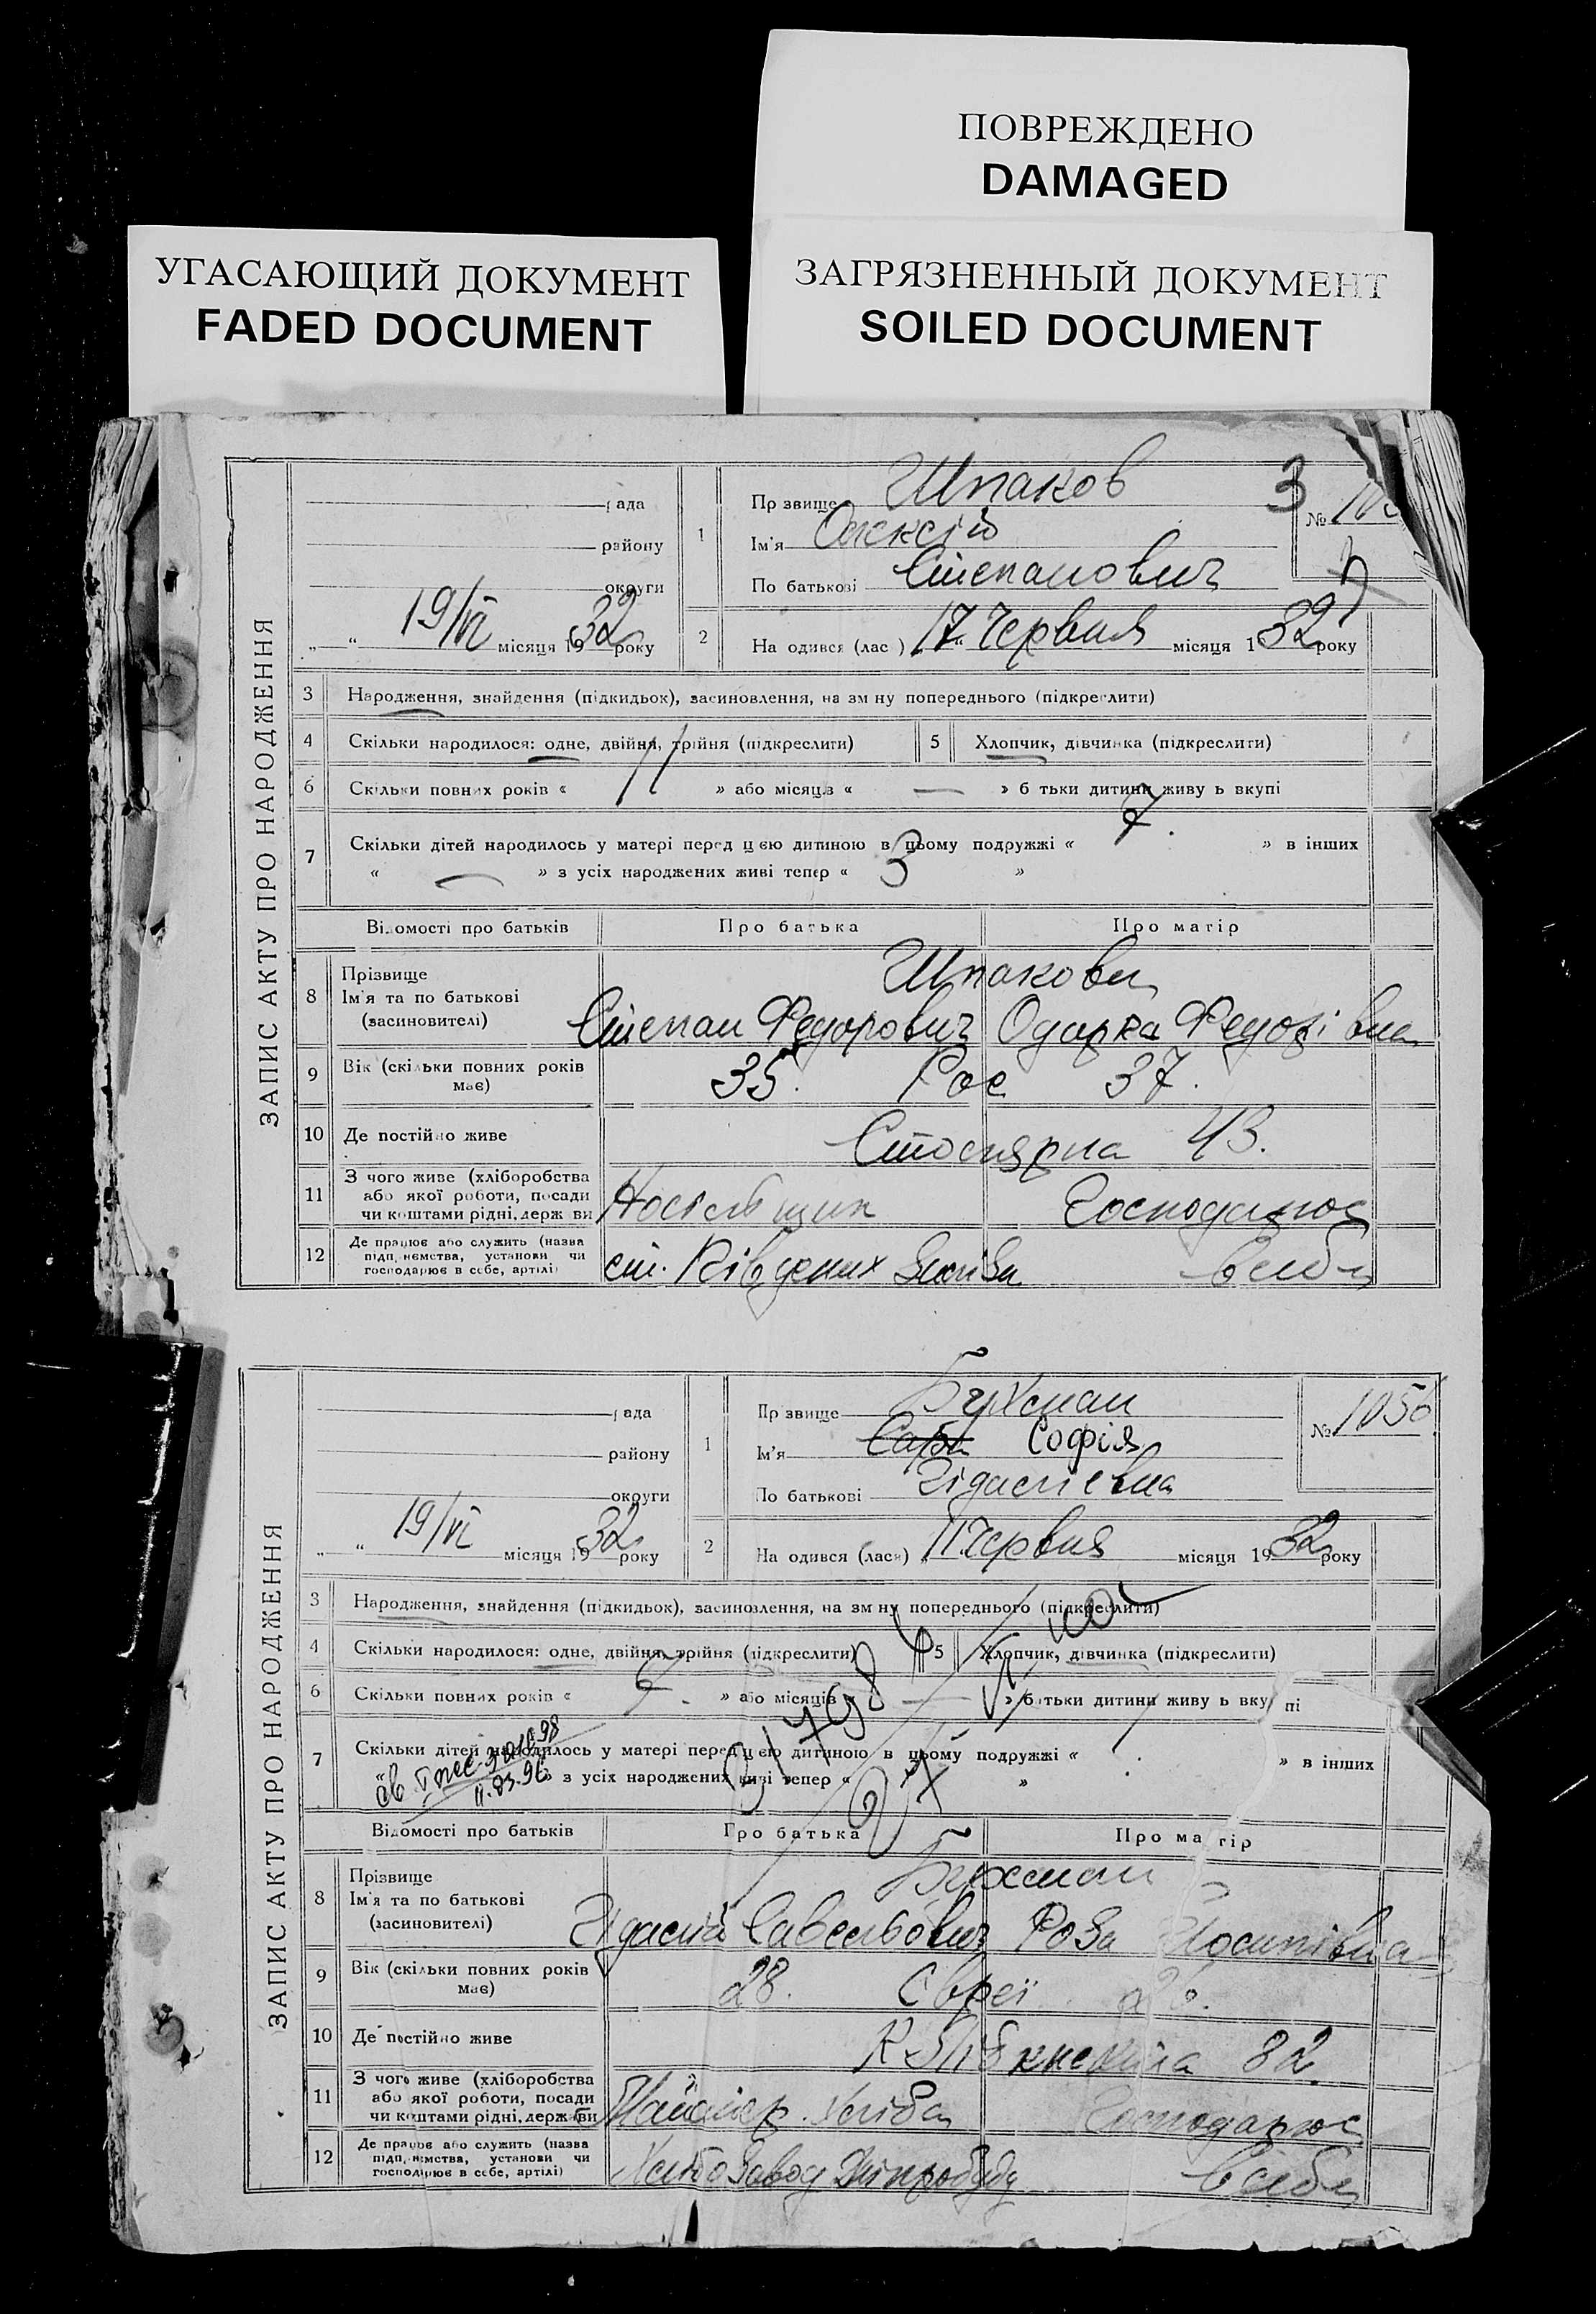 ПОВРЕЖДЕНО
DAMAGED
УГАСАЮЩИЙ ДОКУМЕНТ
FADED DOCUMENT
ЗАГРЯЗНЕННЫЙ ДОКУМЕНТ
SOILED DOCUMENT
ЗАПИС АКТУ ПРО НАРОДЖЕННЯ
рада
району
округи
„ “ 19/VI місяця 1932 року
1 Прізвище Шпаков
Ім'я Олексій
По батькові Степанович
3
№ 105
2 Народився (лас ) 17 “ Червня місяця 1932 року
3 Народження, знайдення (підкидьок), засиновлення, на зміну попереднього (підкреслити)
4 Скільки народилося: одне, двійня, трійня (підкреслити)
5 Хлопчик, дівчинка (підкреслити)
6 Скільки повних років « 11 » або місяців « — » батьки дитини живуть вкупі
7 Скільки дітей народилось у матері перед цією дитиною в цьому подружжі « 7. » в інших
« — » з усіх народжених живі тепер « 3 »
Відомості про батьків Про батька Про матір
8 Прізвище Ім'я та по батькові (засиновителі)
Шпакови
Степан Федорович Одарка Федорівна
9 Вік (скільки повних років має) 35. Рос 37.
10 Де постійно живе Столярна 43.
11 З чого живе (хліборобства або якої роботи, посади чи коштами рідні, держави Носільщик Господарює
12 Де працює або служить (назва підприємства, установи чи господарює в себе, артілі)
ст. Південих в себе
ЗАПИС АКТУ ПРО НАРОДЖЕННЯ
рада
району
округи
„ “ 19/VI місяця 1932 року
1 Прізвище Бухман
Ім'я Сара Софія
По батькові
№ 1056
2 Народився (лася) 11 Червня місяця 1932 року
3 Народження, знайдення (підкидьок), засиновлення, на зміну попереднього (підкреслити)
4 Скільки народилося: одне, двійня, трійня (підкреслити)
5 Хлопчик, дівчинка (підкреслити)
6 Скільки повних років « » або місяців — » батьки дитини живуть вкупі
7 Скільки дітей народилось у матері перед цією дитиною в цьому подружжі « » в інших
« » з усіх народжених живі тепер « »
11.03.96
Відомості про батьків Про батька Про матір
8 Прізвище Ім'я та по батькові (засиновителі)
Бухман
Савельович Роза Йосипівна
9 Вік (скільки повних років має) 28. Євреї 26.
10 Де постійно живе К Лібкнехта 82.
11 З чого живе (хліборобства або якої роботи, посади чи коштами рідні, держави Майстер хліба Господарює
12 Де працює або служить (назва підприємства, установи чи господарює в себе, артілі)
Хлібозавод Дніпробуду в себе